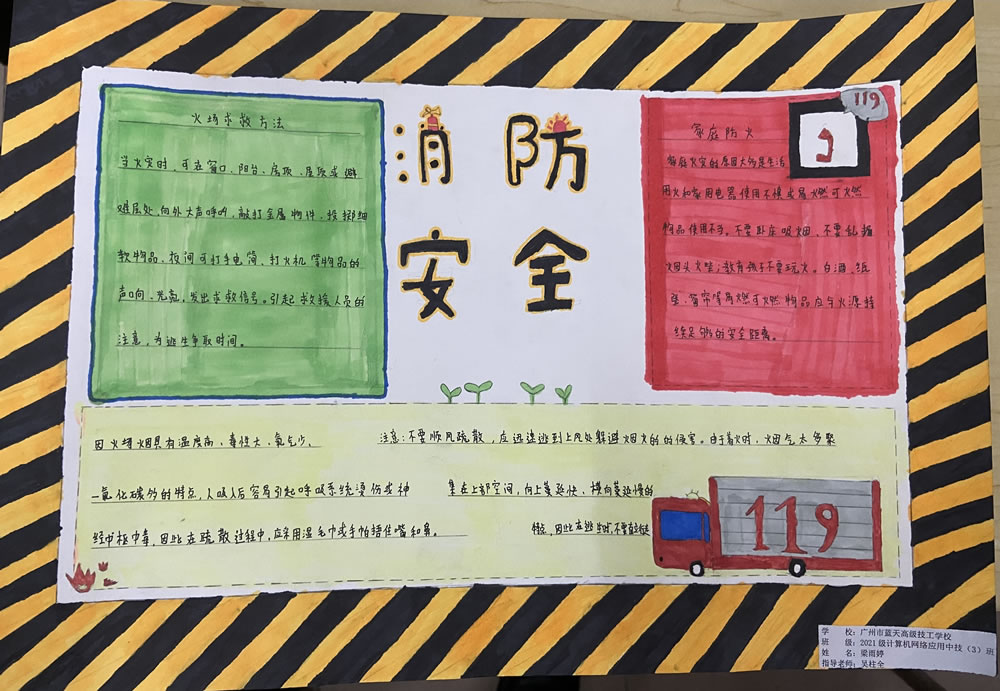 消防
安全
火场求救方法
当火灾时，可在窗口、阳台、房顶、屋顶或避
难层处，向外大声呼喊，敲打金属物件、投掷细
软物品、夜间可打手电筒、打火机等物品的
声响、光亮，发出求救信号。引起救援人员的
注意，为逃生争取时间。
119
家庭防火
家庭火灾的原因大多是生活
用火和家用电器使用不慎或易燃可燃
物品使用不当。不要卧床吸烟，不要乱扔
烟头火柴；教育孩子不要玩火。白酒、纸
张、窗帘等易燃可燃物品应与火源持
续足够的安全距离。
因火场烟具有温度高、毒性大、氧气少、
一氧化碳多的特点，人吸入后容易引起呼吸系统烫伤或神
经中枢中毒，因此在疏散过程中，应采用湿毛巾或手帕捂住嘴和鼻。
注意：不要顺风疏散，应迅速逃到上风处躲避烟火的的侵害。由于着火时，烟气太多聚
集在上部空间，向上蔓延快、横向蔓延慢的
特点，因此在逃生时，不要直立
119
学 校：广州市蓝天高级技工学校
班 级：2021级计算机网络应用中技（3）班
姓 名：梁雨婷
指导老师：吴柱全